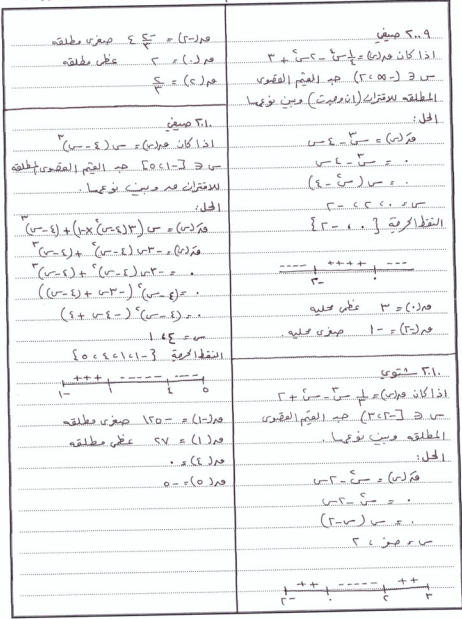 ٢٠٠٩ صيفي
اذا كان قه(س) = ١/٤ س٤ - ٢س٢ + ٣
س ∈ (-∞، ٢) جد القيم القصوى
المطلقه للاقتران (ان وجدت) وبين نوعها
الحل:
قَه(س) = س٣ - ٤س
٠ = س٣ - ٤س
٠ = س(س٢ - ٤)
س = ٠، ٢، -٢
النقط الحرجة {٠، -٢}
---- ++++ ----
-٢ ٠
قه(٠) = ٣ عظمى محليه
قه(-٢) = -١ صغرى محليه.
٢٠١٠ شتوي
اذا كان قه(س) = ١/٣ س٣ - س٢ + ٢
س ∈ [-٢، ٣) جد القيم القصوى
المطلقه وبين نوعها.
الحل:
قَه(س) = س٢ - ٢س
٠ = س٢ - ٢س
٠ = س(س-٢)
س = صفر، ٢
++ ----- ++
-٢ ٠ ٢ ٣
صغرى مطلقه
قه(٠) = ٢ عظمى مطلقه
٢٠١٠ صيفي
اذا كان قه(س) = س(٤-س)٣
س ∈ [-١، ٥] جد القيم القصوى المطلقه
للاقتران قه وبين نوعها.
الحل:
قَه(س) = س(٣(٤-س)٢×-١) + (٤-س)٣
قَه(س) = -٣س(٤-س)٢ + (٤-س)٣
٠ = -٣س(٤-س)٢ + (٤-س)٣
٠ = (٤-س)٢(-٣س + (٤-س))
٠ = (٤-س)٢(-٤س + ٤)
س = ٤، ١
النقط الحرجة {-١، ١، ٤، ٥}
+++ ------ ---
-١ ١ ٤ ٥
قه(-١) = -١٢٥ صغرى مطلقه
قه(١) = ٢٧ عظمى مطلقه
قه(٤) = ٠
قه(٥) = -٥